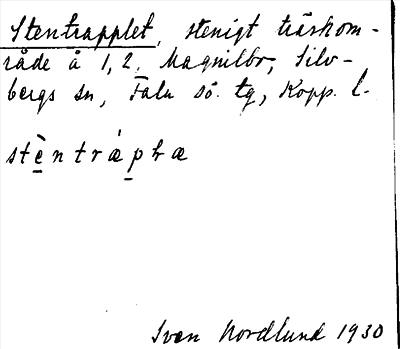 Stentrapplet, stenigt träskom-
råde å 1,2, Magnilbo, Silv-
bergs sn, Falu sö. tg, Kopp. l.
stèntrápḷæ
Ivan Nordlund 1930